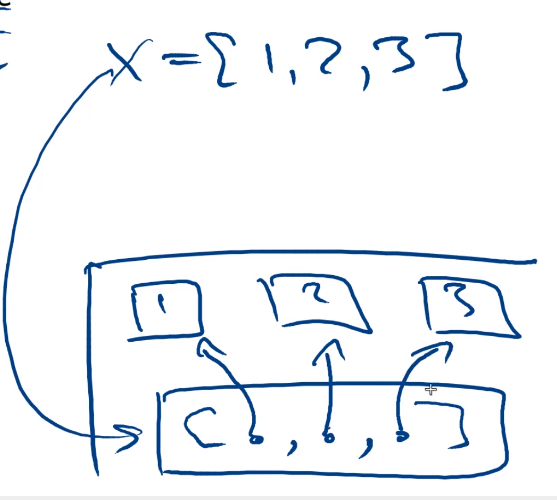 x = [1, 2, 3]
1 2 3
[ , , ]